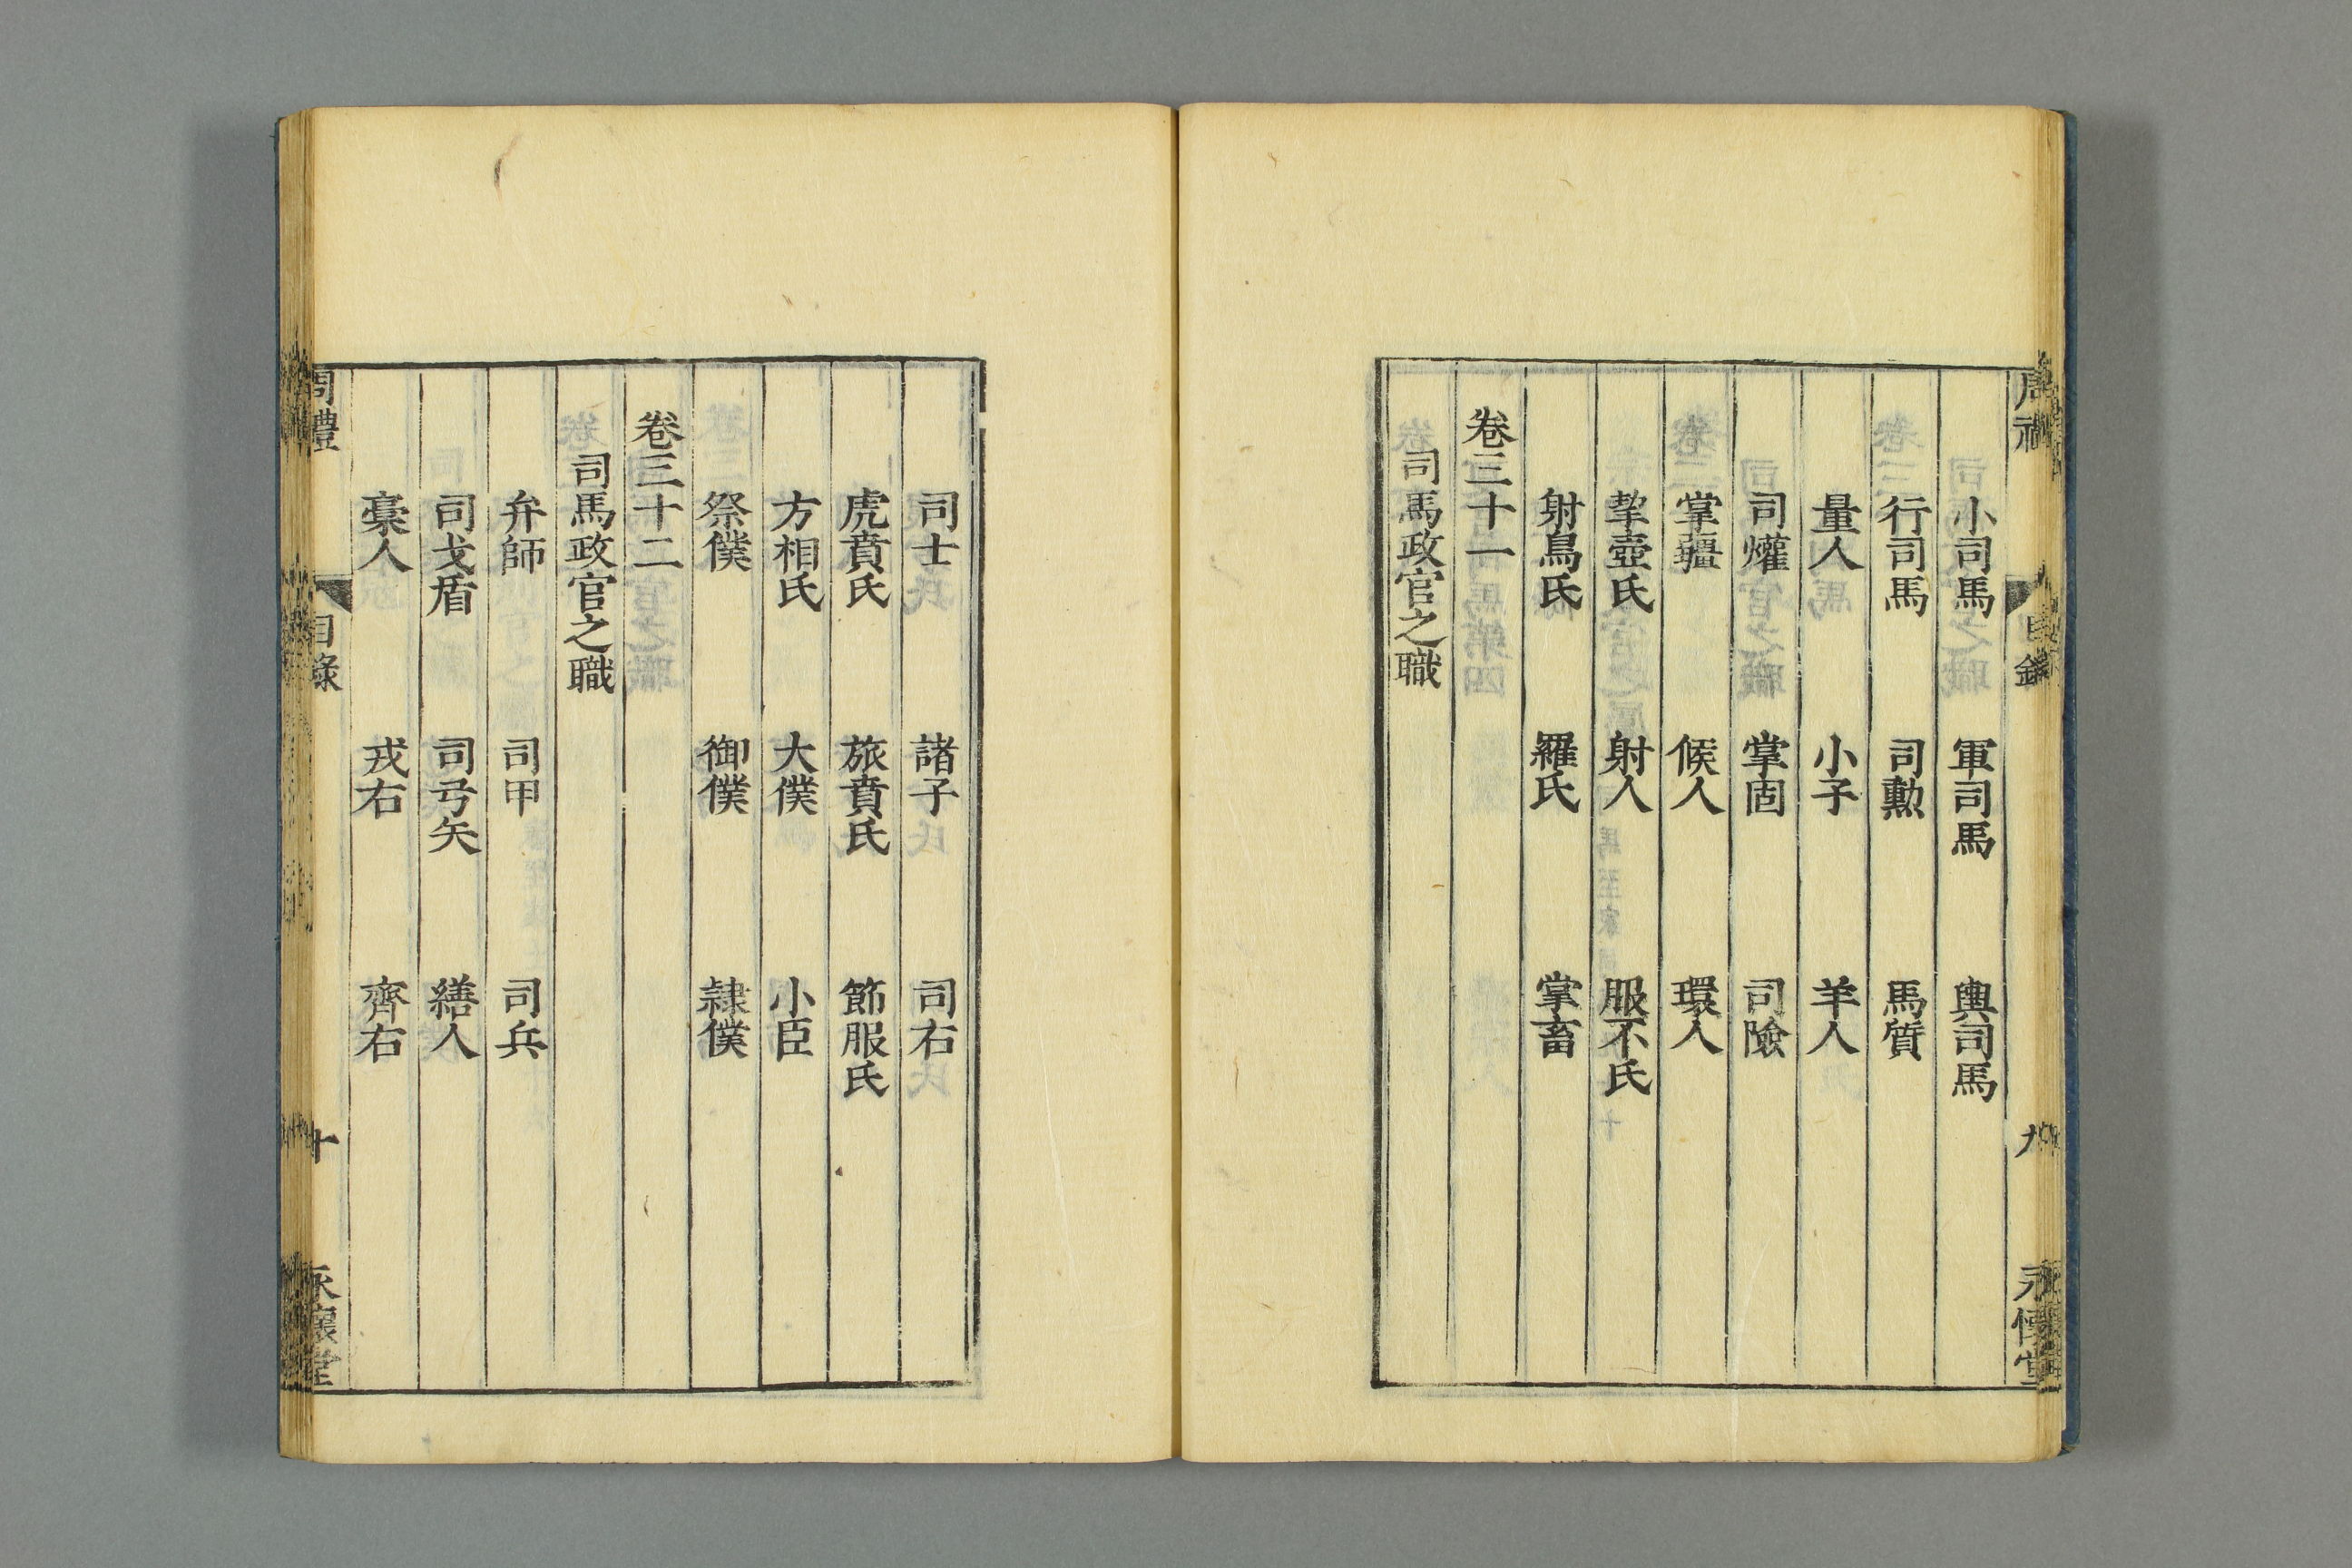 小司馬 軍司馬 輿司馬
行司馬 司勲 馬質
量人 小子 羊人
司爟 掌固 司險
掌疆 候人 環人
挈壺氏 射人 服不氏
射鳥氏 羅氏 掌畜
卷三十一
司馬政官之職
司士 諸子 司右
虎賁氏 旅賁氏 節服氏
方相氏 大僕 小臣
祭僕 御僕 隷僕
卷三十二
司馬政官之職
弁師 司甲 司兵
司戈盾 司弓矢 繕人
槀人 戎右 齊右
周禮 目錄 十 永懷堂